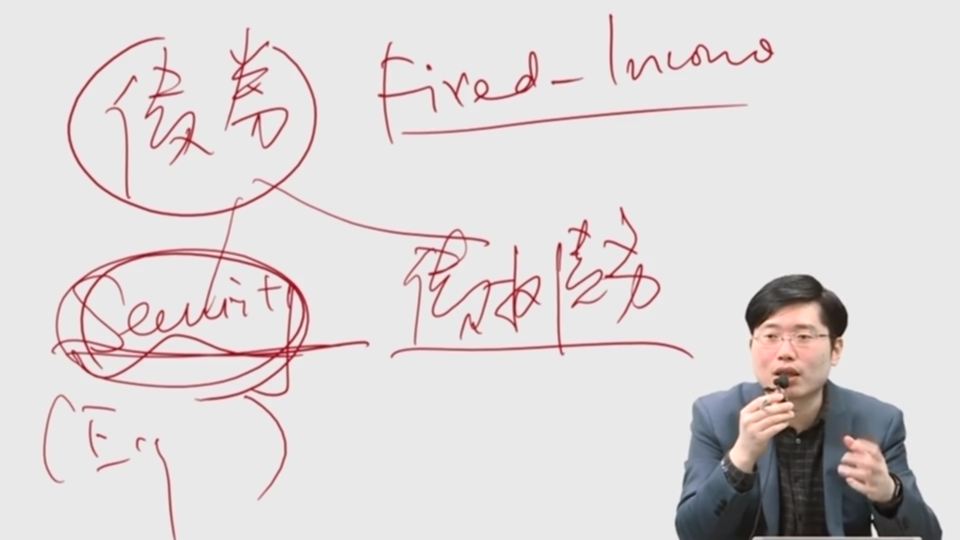 债券 Fixed-Income
Security 债权债务
(Eq )